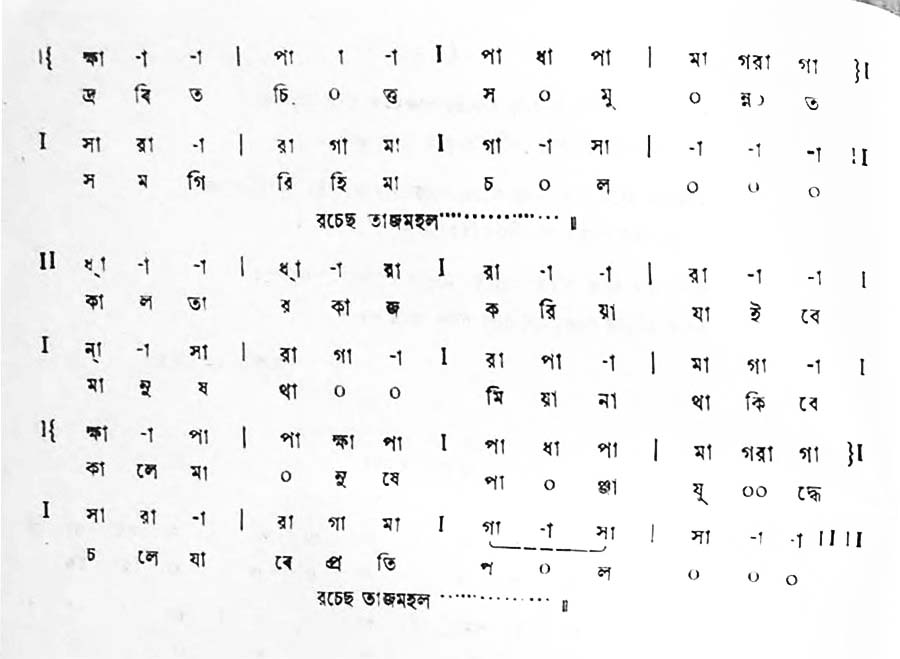 I{ ক্ষা -া -া | পা া -া I পা ধা পা | মা গরা গা }I
দ্র ৰি ত চি ০ ত্ত স ০ মু ০ ন্ন০ ত
I সা রা -া | রা গা মা I গা -া সা | -া -া -া !I
স ম গি রি হি মা চ ০ ল ০ ০ ০
রচেছ তাজমহল................... ॥
II ধ্া -া -া | ধ্া -া রা I রা -া -া | রা -া -া I
কা ল তা র কা জ ক রি য়া যা ই বে
I ন্া -া সা | রা গা -া I রা পা -া | মা গা -া I
মা নু ষ থা ০ ০ মি য়া না থা কি বে
I{ ক্ষা -া পা | পা ক্ষা পা I পা ধা পা | মা গরা গা }I
কা লে মা ০ নু ষে পা ০ ঞ্জা যু ০০ দ্ধে
I সা রা -া | রা গা মা I গা -া সা | সা -া -া II II
চ লে যা ৰে প্র তি প ০ ল ০ ০ ০
রচেছ তাজমহল ................ ॥